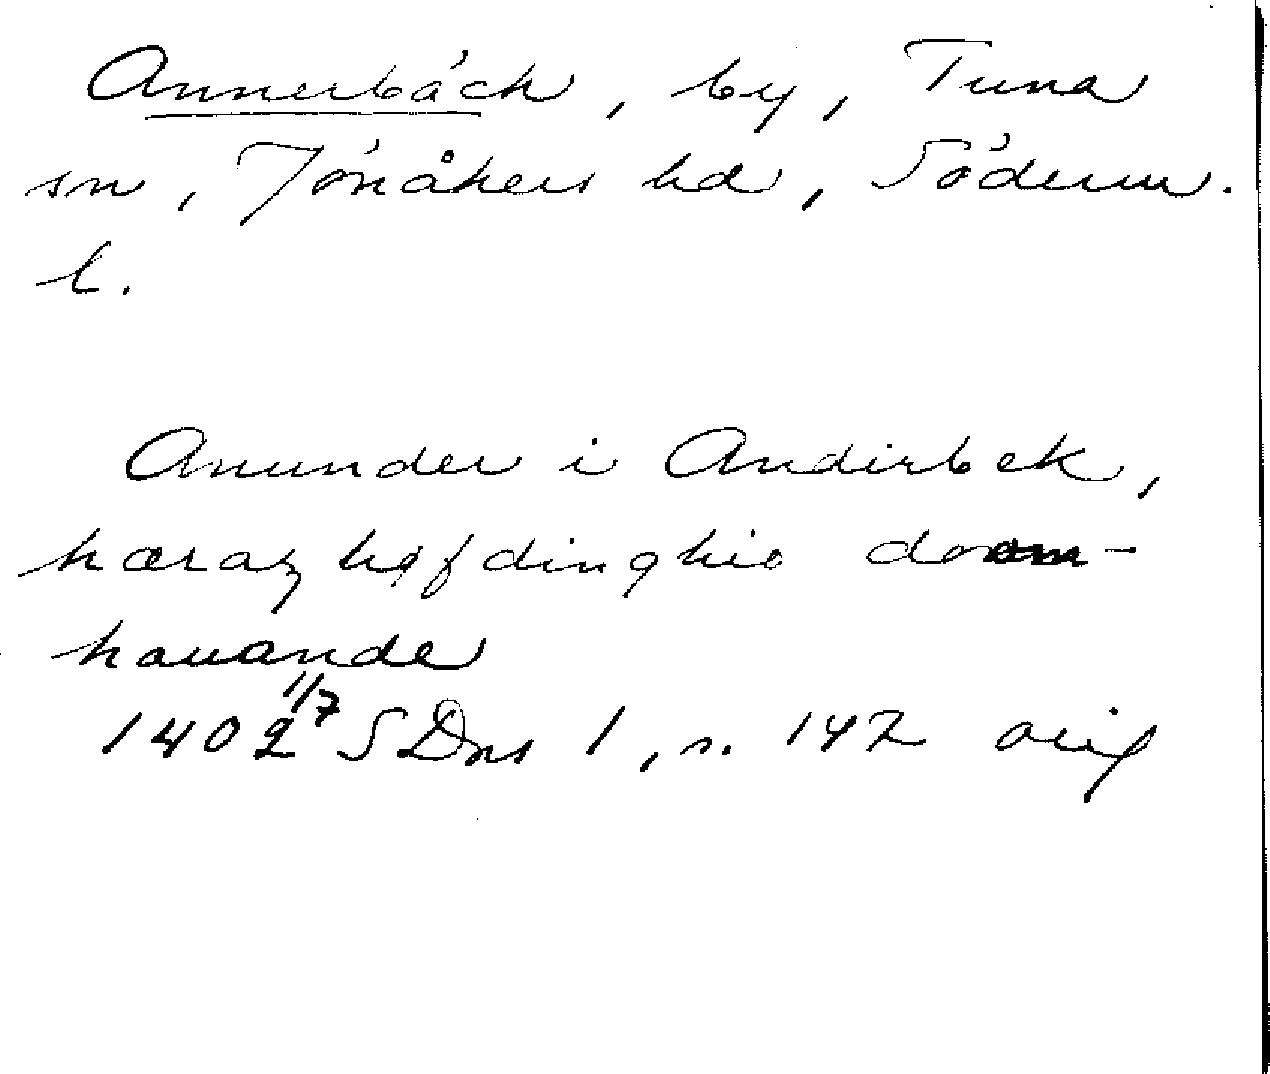 Annerbäck, by, Tuna
sn, Jönåkers hd, Söderm.
l.
Anunder i Andirbek,
hæraz høfdinghio doom-
hauande
1402 1/7 SDns 1, s. 142 orig